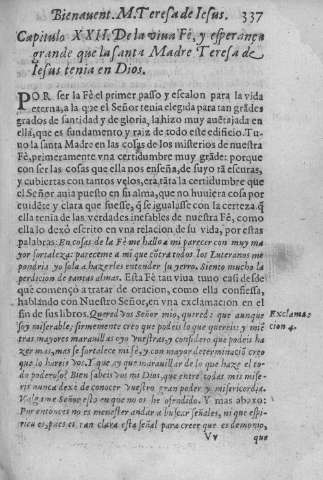 Bienauent. M. Teresa de Iesus. 337
Capitulo XXII. De la viua Fè, y esperança
grande que la santa Madre Teresa de
Iesus tenia en Dios.
POR ser la Fè el primer passo y escalon para la vida
eterna, a la que el Señor tenia elegida para tan grãdes
grados de santidad y de gloria, la hizo muy auẽtajada en
ella, que es fundamento y raiz de todo este edificio. Tu-
uo la santa Madre en las cosas de los misterios de nuestra
Fè, primeramente vna certidumbre muy grãde: porque
con ser las cosas que ella nos enseña, de suyo tã escuras,
y cubiertas con tantos velos, era tãta la certidumbre que
el Señor auia puesto en su alma, que no huuiera cosa por
euidẽte y clara que fuesse, q̃ se igualasse con la certeza q̃
ella tenia de las verdades inefables de nuestra Fè, como
ella lo dexò escrito en vna relacion de su vida, por estas
palabras: En cosas de la Fè me hallo a mi parecer con muy ma
yor fortaleza: pareceme a mi que cõtra todos los Luteranos me
pondria yo sola a hazerles entender su yerro. Siento mucho la
perdicion de tantas almas. Esta Fè tan viua tuuo casi desde
que començò a tratar de oracion, como ella confiessa,
hablando con Nuestro Señor, en vna exclamacion en el
fin de sus libros. Quered vos Señor mio, quered: que aunque
soy miserable, firmemente creo que podeis lo que quereis: y miẽ
tras mayores marauillas oyo vuestras, y considero que podeis ha
zer mas, mas se fortalece mi fè, y con mayor determinaciõ creo
que lo hareis vos. Y que ay que marauillar de lo que haze el to
do poderoso? Bien sabeis vos mi Dios, que entre todas mis mise-
rias nunca dexè de conocer vuestro gran poder y misericordia.
Valgame Señor esto en que no os he ofẽdido. Y mas abaxo:
Por entonces no es menester andar a buscar señales, ni que espi-
ritu es, pues es tan clara esta señal para creer que es demonio,
Vv que
Exclama-
cion 4.